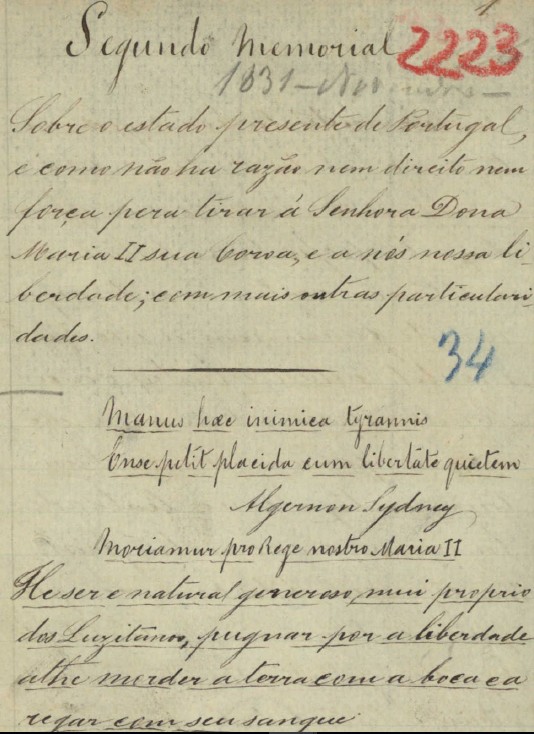 Segundo Memorial
2223
1831 —
Sobre o estado presente de Portugal,
e como não ha razão nem direito nem
força pera tirar á Senhora Dona
Maria II sua Coroa, e a nós nossa li-
berdade; com mais outras particulari-
dades.
34
Manus hæc inimica tyrannis
Ense petit placida cum libertate quietem
Algernon Sydney
Moriamur pro Rege nostro Maria II
He ser e natural generoso, mui proprio
dos Luzitanos, pugnar por a liberdade
athe morder a terra com a boca e a
regar com seu sangue